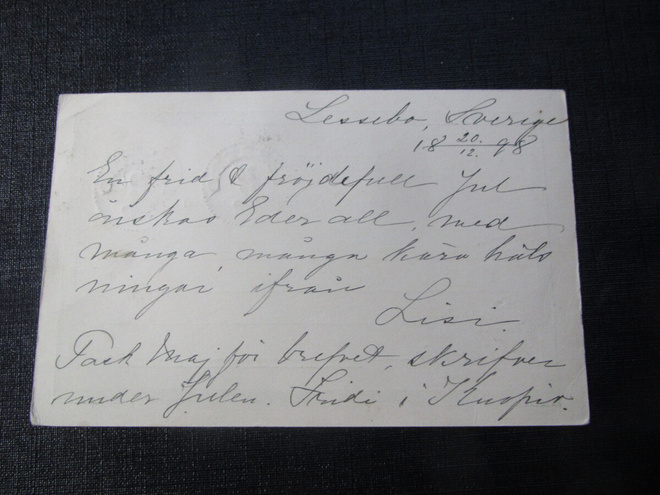 Lessebo, Sverige
18 20/12. 98
En frid & fröjdefull Jul
önskas Eder all, med
många, många kära häls
ningar ifrån
Lisi.
Tack Maj för brefvet, skrifver
under Julen. Fridi i Kuopio.